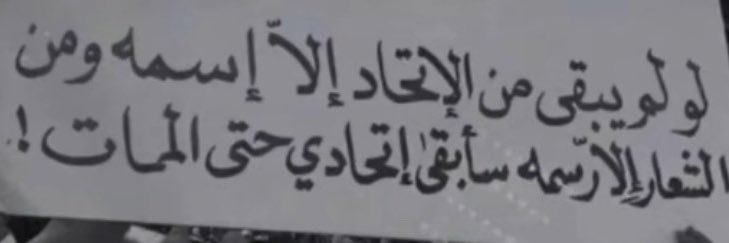 لو لم يبقى من الإتحاد إلاّ إسمه ومن
الشعار إلا رسمه سأبقىٰ إتحادي حتى الممات !